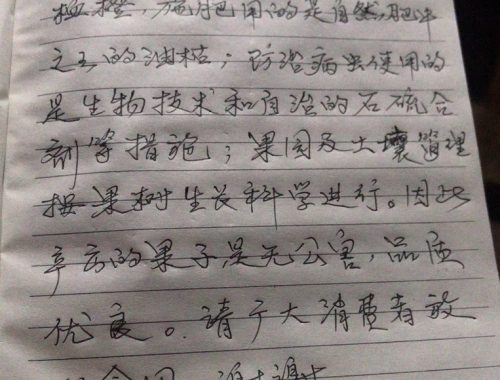 橙，施肥用的是自然肥中
之王的油枯；防治病虫使用的
是生物技术和自治的石硫合
剂等措施；果园及土壤管理
按果树生长科学进行。因此
辛方的果子是无公害，品质
优良。请于大消费者放
谢谢